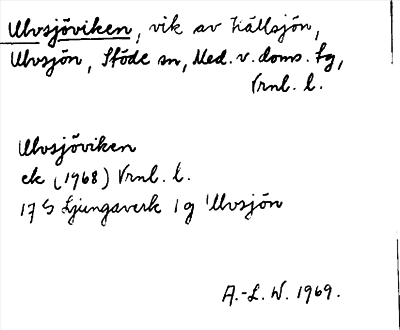 Ulvsjöviken, vik av Hällsjön,
Ulvsjön, Stöde sn, Med. v. doms. tg,
Vrnl. l.
Ulvsjöviken
ek (1968) Vrnl. l.
17 G Ljungaverk 1 g Ulvsjön
A.-L. W. 1969.